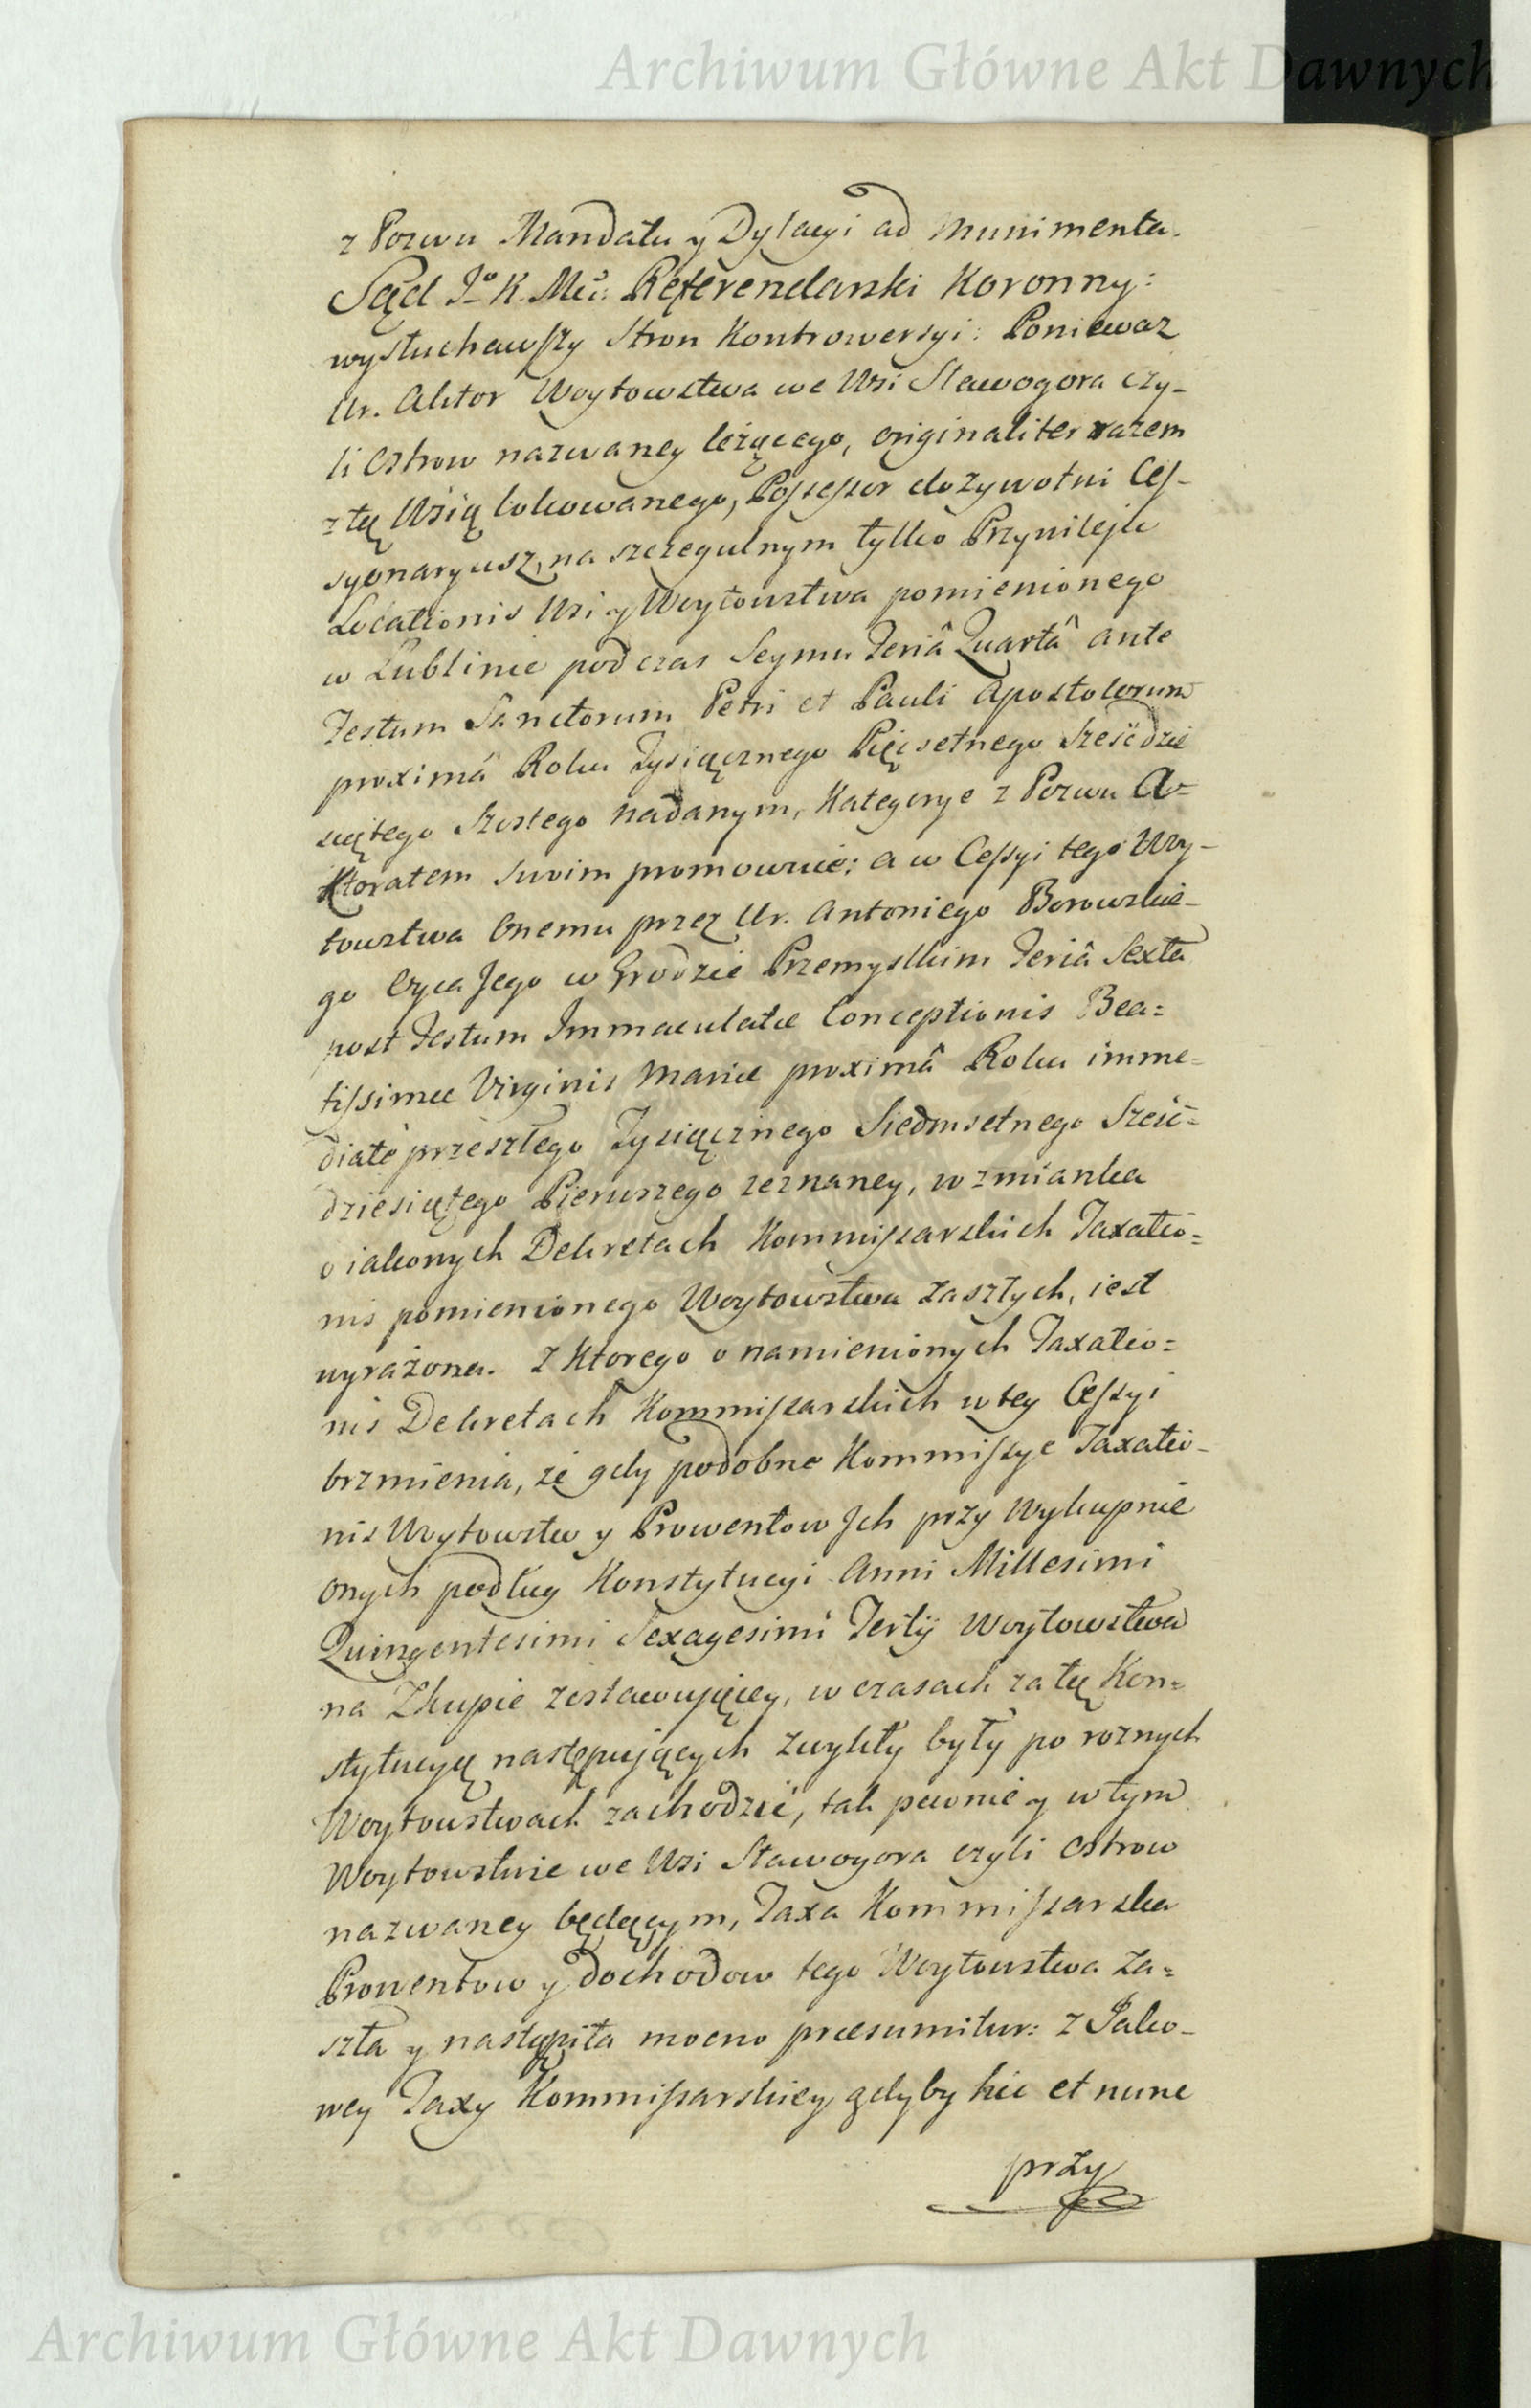 Archiwum Główne Akt Dawnych
z Pozwu Mandatu y Dylacyi ad munimenta.
Sąd Jº K. Mći: Referendarski Koronny:
wysłuchawszy Stron Kontrowersyi: Ponieważ
Ur. Aktor Woytowstwa we Wsi Stawogora czy-
li Ostrow nazwaney leżącego, originaliter razem
z tę Wsią lokowanego, Possessor dożywotni Ces-
syonaryusz, na szczegulnym tylko Przywileju
Locationis Wsi y Woytowstwa pomienionego
w Lublinie podczas Seymu Feriâ Quartâ ante
Festum Sanctorum Petri et Pauli Apostolorum
proximâ Roku Tysiącznego Pięcsetnego Sześćdzie
siątego Szostego nadanym, Kategorye z Pozwu A-
ktoratem swoim promowuie: a w Cessyi tego Woy-
towstwa Onemu przez Ur. Antoniego Borowskie-
go Oyca Jego w Grodzie Przemyslkim Feriâ Sexta
post Festum Immaculatæ Conceptionis Bea=
tissimæ Virginis Mariæ proximâ Roku imme=
diatè przeszłego Tysiącznego Siedmsetnego Sześć=
dziesiątego Pierwszego zeznaney, wzmianka
o iakonych Dekretach Kommissarskich Taxatio=
nis pomienionego Woytowstwa zaszłych, iest
wyrażona. Z Ktorego o namienionych Taxatio=
nis Dekretach Kommissarskich w tey Cessyi
brzmienia, że gdy podobne Kommissye Taxatio-
nis Woytowstw y Prowentow Jch przy Wykupnie
onych podług Konstytucyi Anni Millesimi
Quingentesimi Sexagesimi Tertij Woytowstwa
na Zkupie zostawuiącey, w czasach za tę Kon=
stytucyą następujących zwykły były po roznych
Woytowstwach zachodzić, tak pewnie y w tym
Woytowstwie we Wsi Stawogora czyli Ostrow
nazwaney będącym, Taxa Kommissarska
Prowentow y dochodow tego Woytowstwa za=
szła y nastąpiła mocno præsumitur: z Jako-
wey Taxy Kommissarskiey gdyby hic et nunc
przy
Archiwum Główne Akt Dawnych